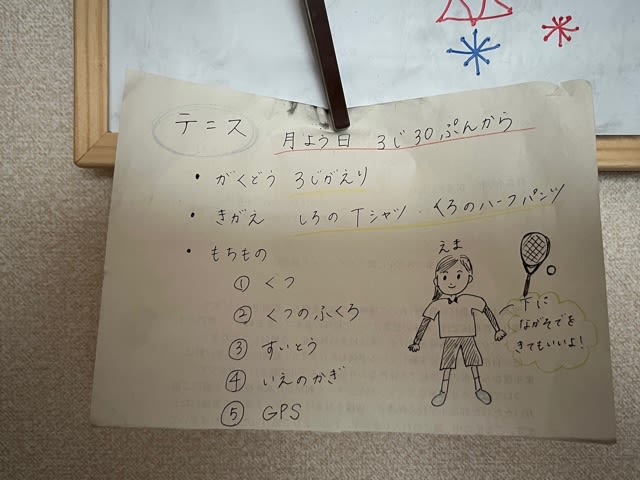 テニス
月よう日 3じ30ぷんから
・がくどう 3じがえり
・きがえ しろのTシャツ・くろのハーフパンツ
・もちもの
① くつ
② くつのふくろ
③ すいとう
④ いえのかぎ
⑤ GPS
えま
下に
ながそでを
きてもいいよ!